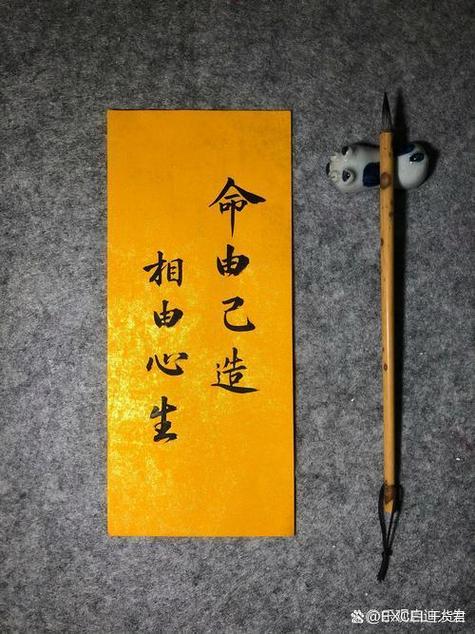 命由己造
相由心生